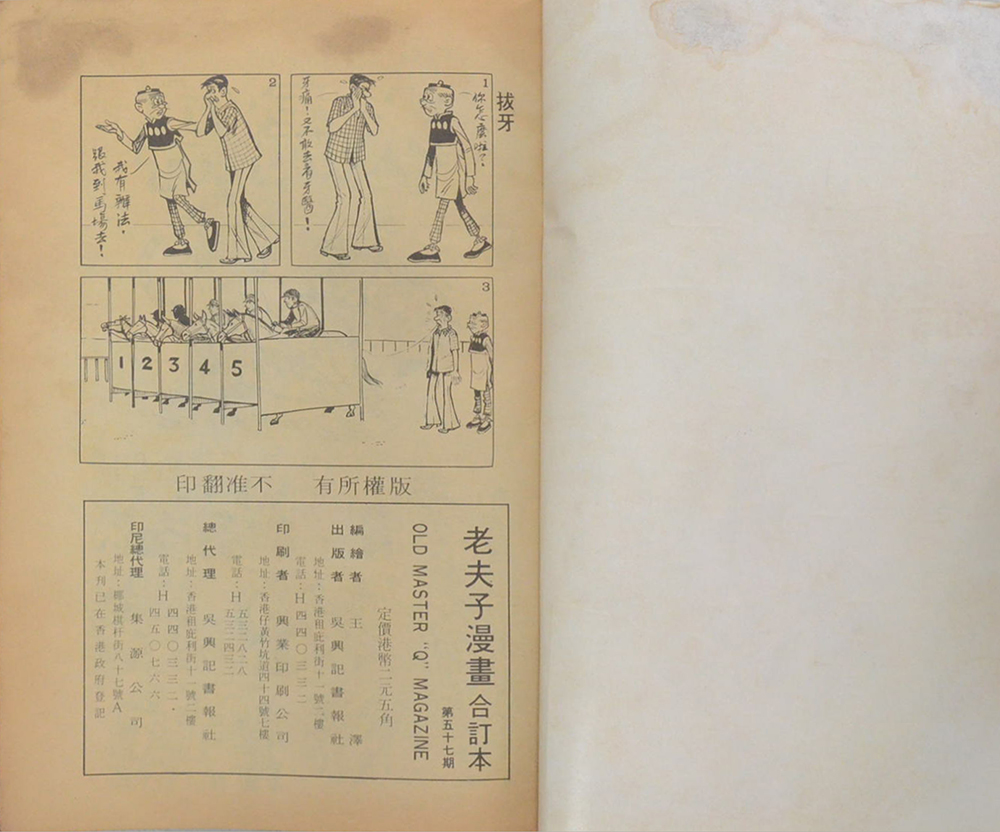 拔牙
1
你怎麼啦？！
牙痛！又不敢去看牙醫！
2
我有辦法，
跟我到馬場去！
3
1 2 3 4 5
版權所有 不准翻印
老夫子漫畫 合訂本
第五十七期
OLD MASTER "Q" MAGAZINE
定價港幣二元五角
編繪者 王澤
出版者 吳興記書報社
地址：香港租庇利街十一號二樓
電話：H四四〇三三二
印刷者 興業印刷公司
地址：香港仔黃竹坑道四十四號七樓
電話：H五三二八二八
五三二四三二
總代理 吳興記書報社
地址：香港租庇利街十一號二樓
電話：H四四〇三三二·
四五〇七六六
印尼總代理 集源公司
地址：椰城棋杆街八十七號A
本刊已在香港政府登記